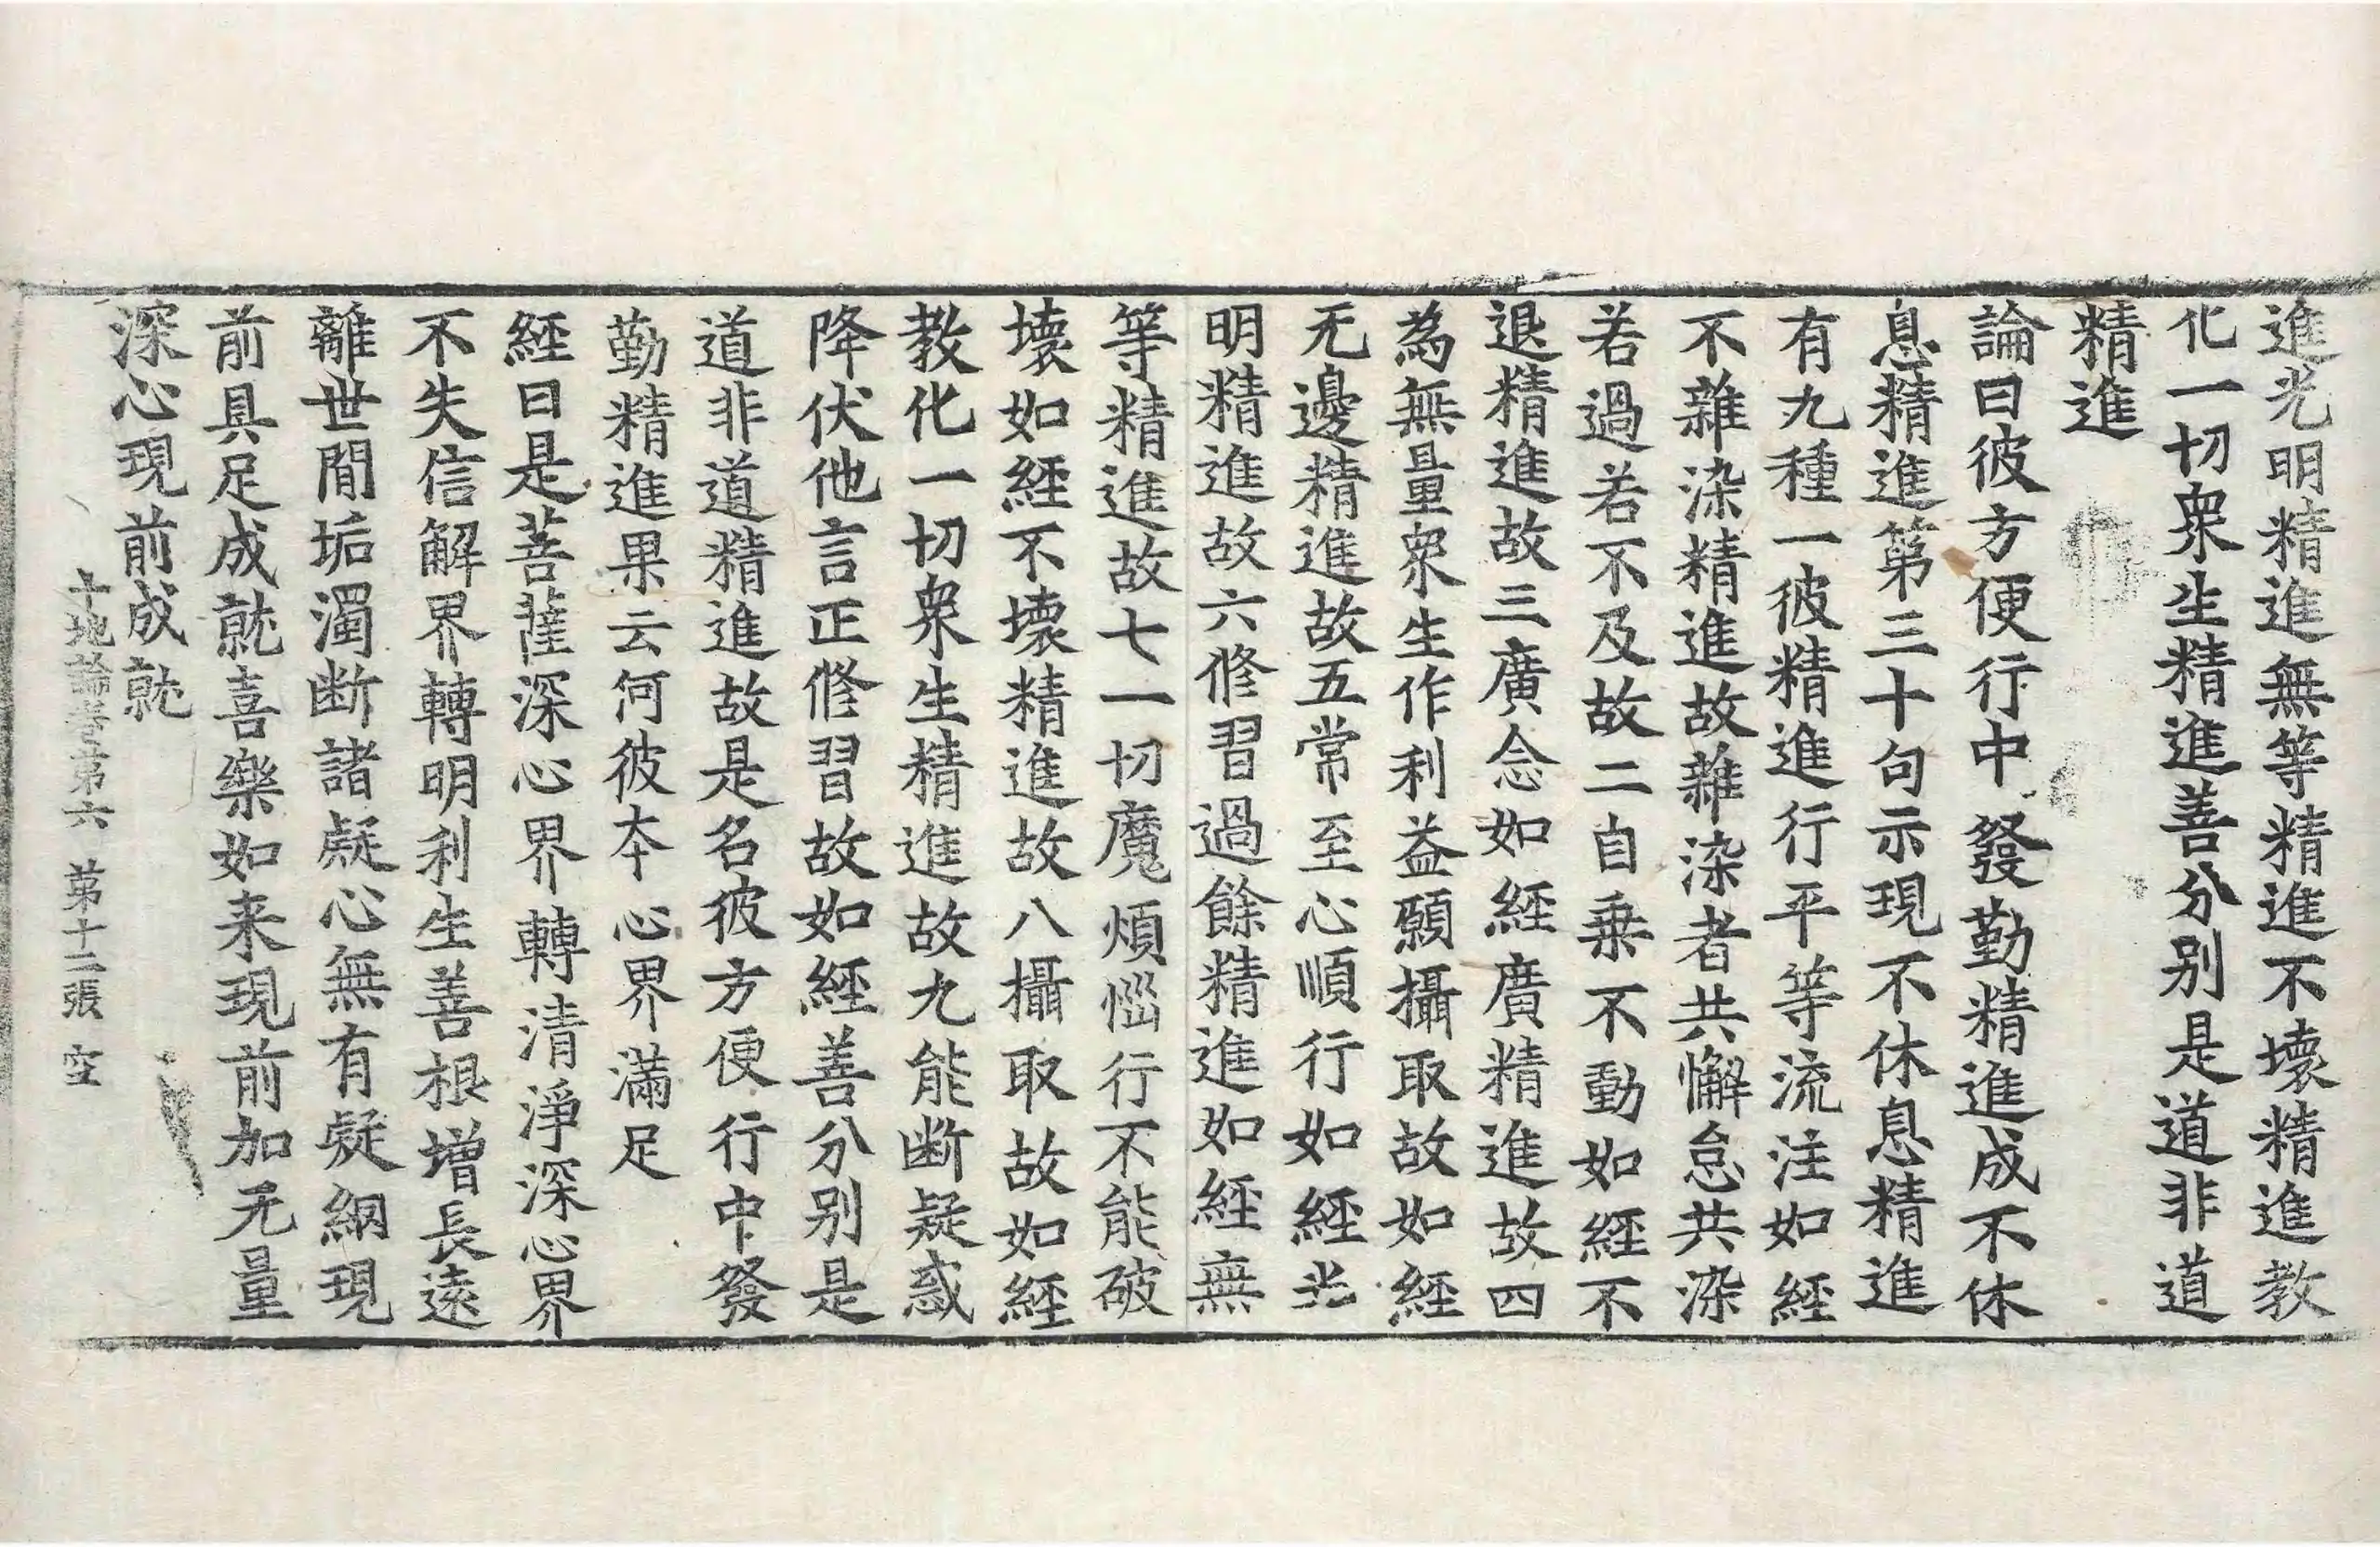 進光明精進無等精進不壞精進教
化一切衆生精進善分别是道非道
精進
論曰彼方便行中發勤精進成不休
息精進第三十句示現不休息精進
有九種一彼精進行平等流注如經
不雜染精進故雜染者共懈怠共染
若過若不及故二自乗不動如經不
退精進故三廣念如經廣精進故四
為無量衆生作利益願攝取故如經
无邊精進故五常至心順行如經光
明精進故六修習過餘精進如經無
等精進故七一切魔煩惱行不能破
壞如經不壞精進故八攝取故如經
教化一切衆生精進故九能断疑惑
降伏他言正修習故如經善分别是
道非道精進故是名彼方便行中發
勤精進果云何彼夲心界滿足
經曰是菩薩深心界轉清淨深心界
不失信解界轉明利生善根增長遠
離世間垢濁断諸疑心無有疑網現
前具足成就喜樂如来現前加无量
深心現前成就
十地論卷第六　第十二張　空